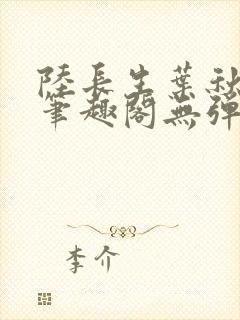 陸長生葉秋
筆趣閣無彈
李介